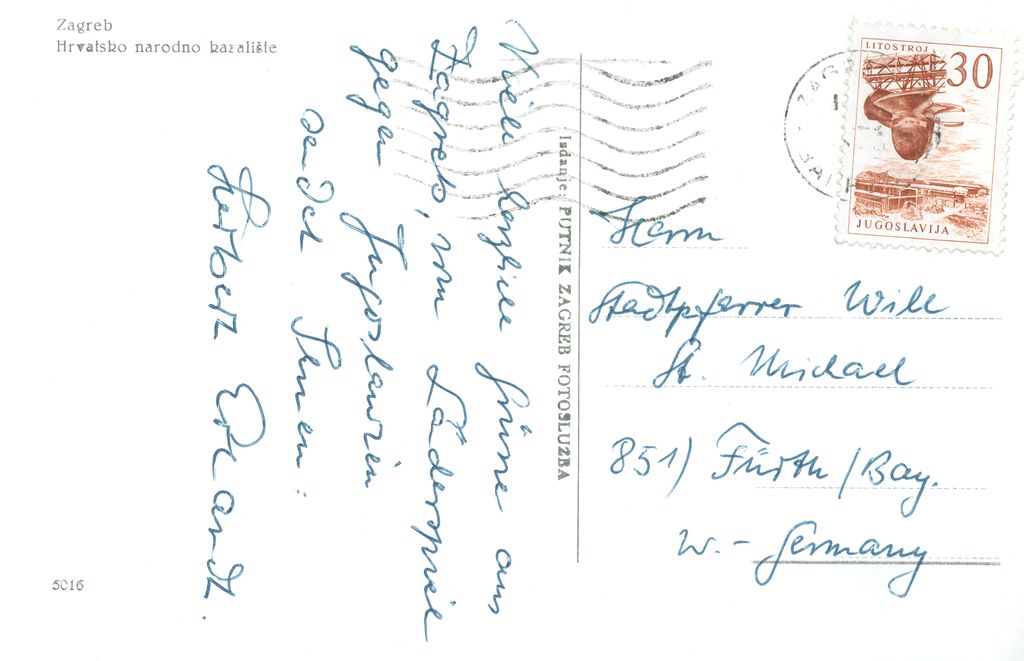 Zagreb
Hrvatsko narodno kazalište
Viele herzliche Grüsse aus
Zagreb, vom Länderspiel
gegen Jugoslawien
sendet Ihnen:
Herbert Erhardt.
Izdanje: PUTNIK ZAGREB FOTOSLUŽBA
LITOSTROJ
30
JUGOSLAVIJA
ZAGREB
Herrn
Stadtpfarrer Will
St. Michael
851) Fürth/Bay.
W.-Germany
5016